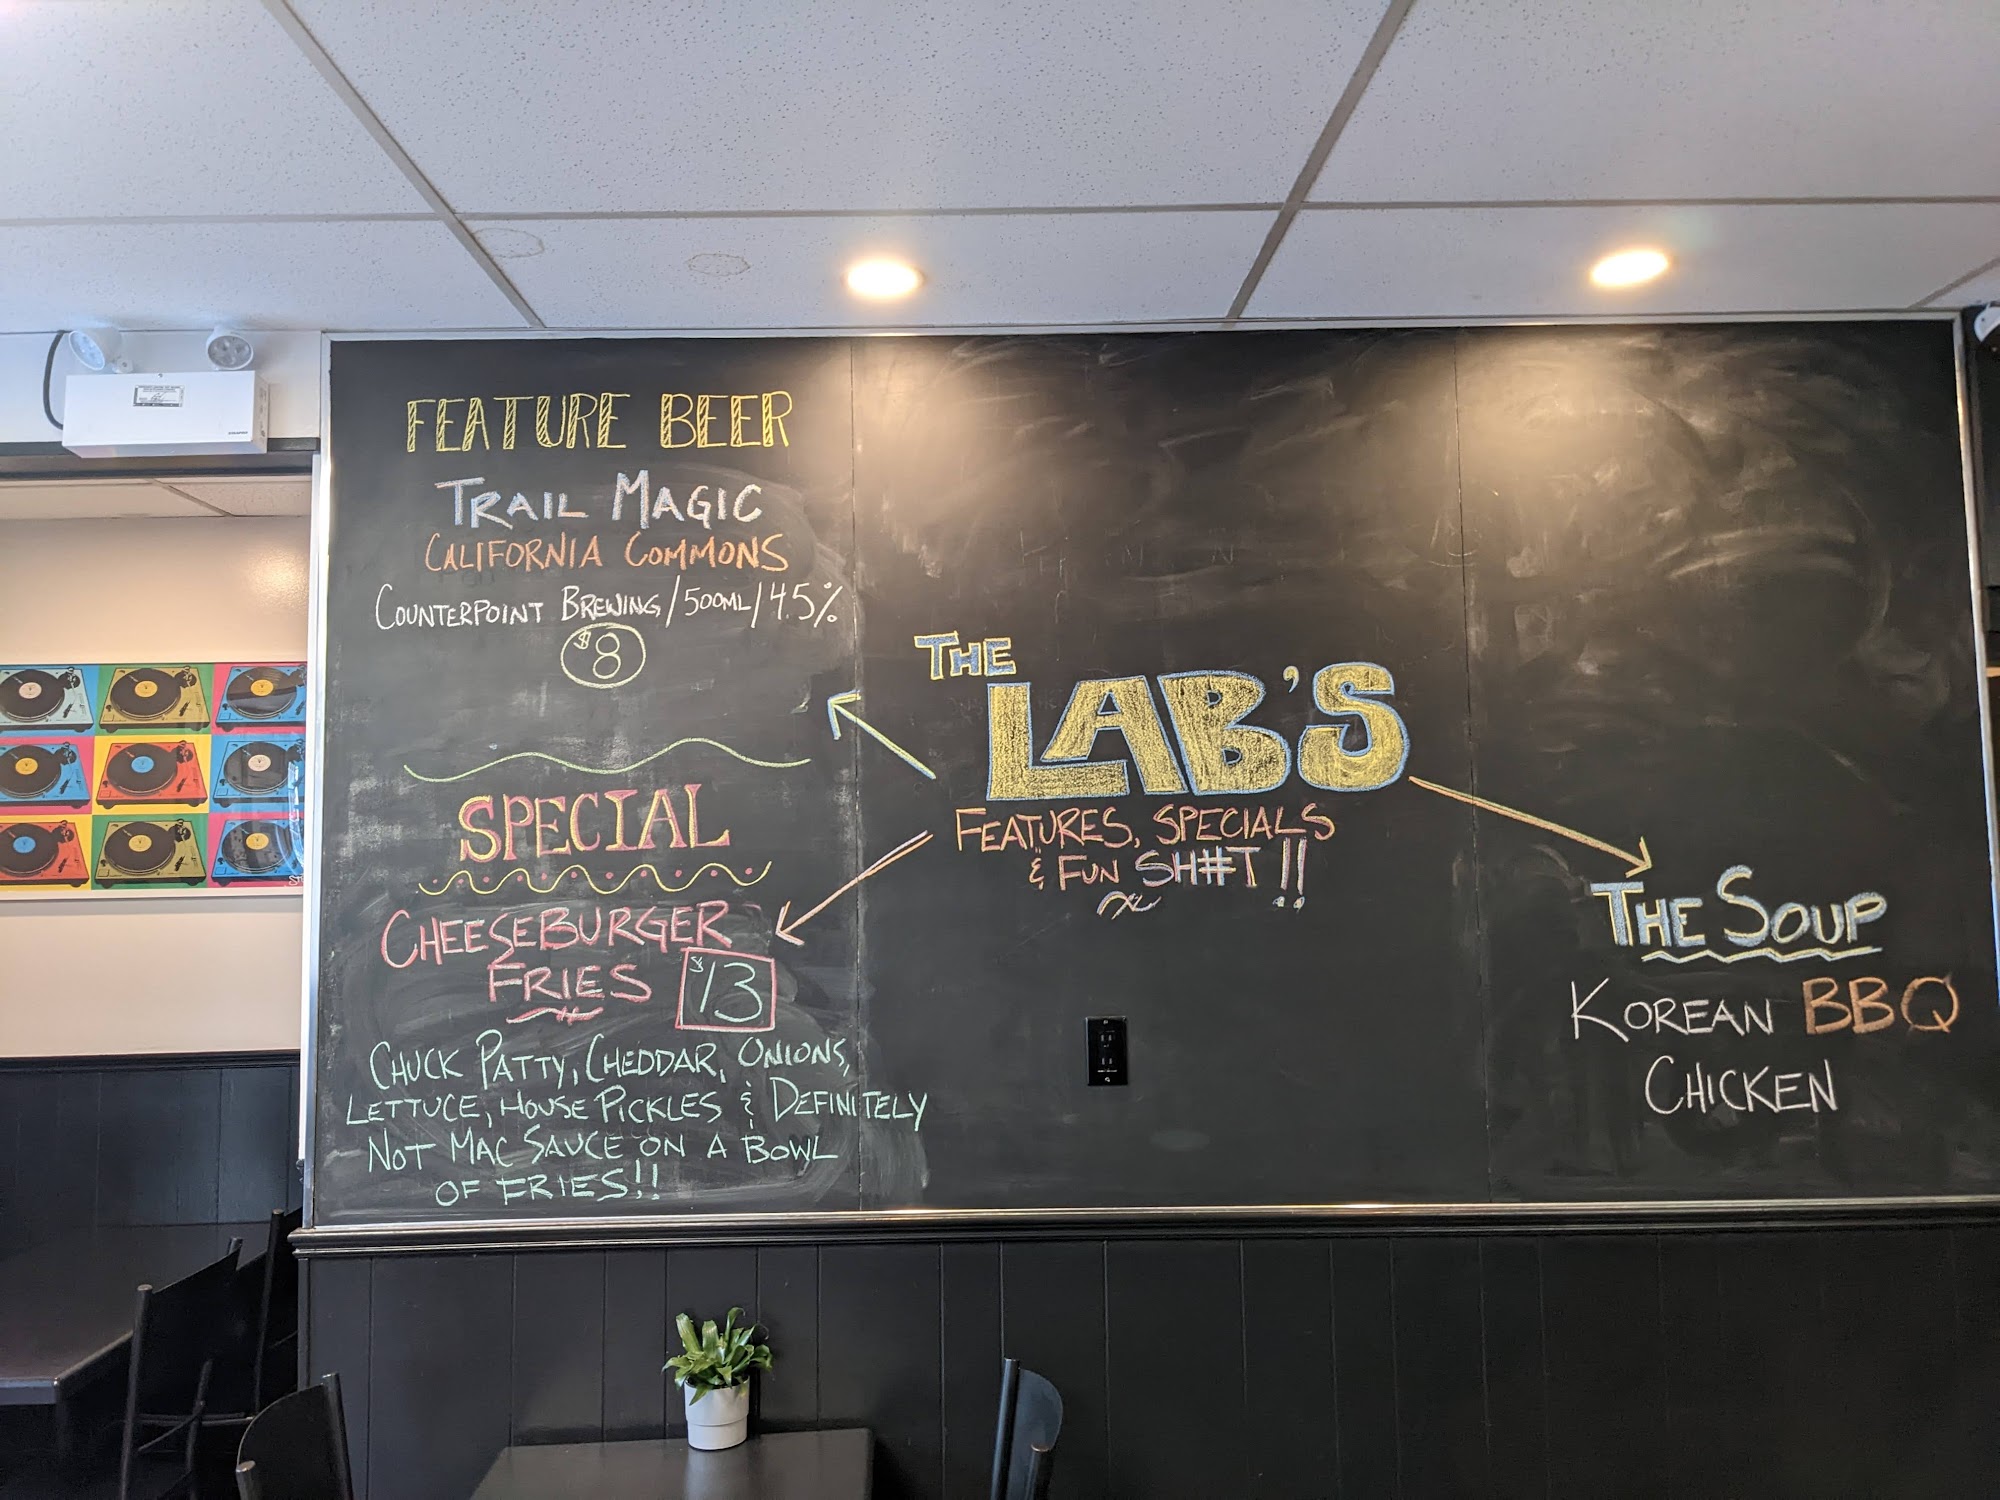 FEATURE BEER
TRAIL MAGIC
CALIFORNIA COMMONS
COUNTERPOINT BREWING/500ML/4.5%
$8
SPECIAL
CHEESEBURGER
FRIES $13
CHUCK PATTY, CHEDDAR, ONIONS,
LETTUCE, HOUSE PICKLES & DEFINITELY
NOT MAC SAUCE ON A BOWL
OF FRIES!!
THE
LAB'S
FEATURES, SPECIALS
& FUN SH#T!!
THE SOUP
KOREAN BBQ
CHICKEN